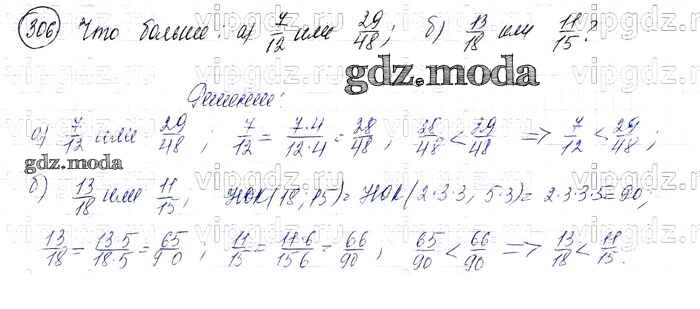 306 Что больше: а) 7/12 или 29/48; б) 13/18 или 11/15?
gdz.moda
Решение:
а) 7/12 или 29/48; 7/12 = 7·4/12·4 = 28/48; 28/48 < 29/48 => 7/12 < 29/48;
gdz.moda
б) 13/18 или 11/15; НОК(18,15) = НОК(2·3·3, 5·3) = 2·3·3·5 = 90;
13/18 = 13·5/18·5 = 65/90; 11/15 = 11·6/15·6 = 66/90; 65/90 < 66/90 => 13/18 < 11/15.